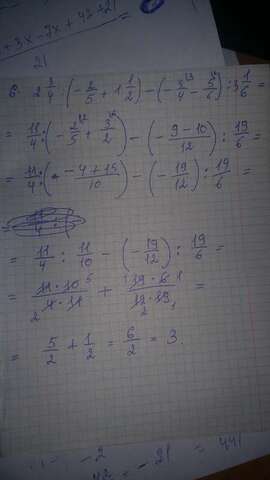 + 3x - 7x + 42 + 21
21
6. 2 3/4 : (- 2/5 + 1 1/2) - (- 3/4 - 5/6) : 3 1/6 =
= 11/4 : (- 2/5 + 3/2) - (- 9 - 10 / 12) : 19/6 =
= 11/4 : (- 4 + 15 / 10) - (- 19/12) : 19/6 =
= 11/4 : 11/10 - (- 19/12) : 19/6 =
= 11 · 10 / 4 · 11 + 19 · 6 / 12 · 19 =
= 5/2 + 1/2 = 6/2 = 3.